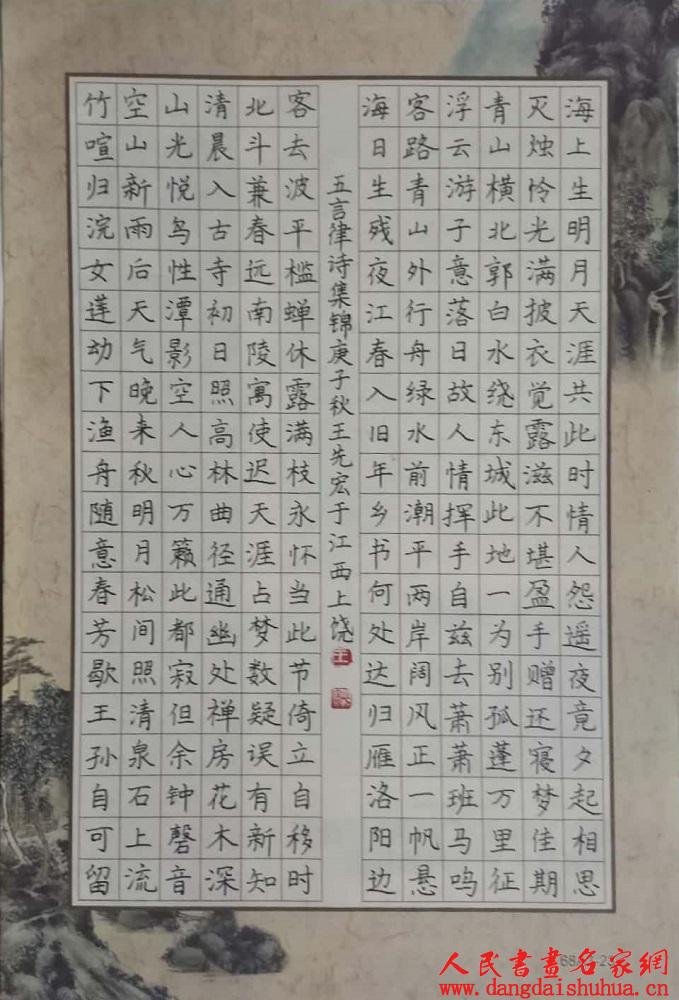 海上生明月天涯共此时情人怨遥夜竟夕起相思
灭烛怜光满披衣觉露滋不堪盈手赠还寝梦佳期
青山横北郭白水绕东城此地一为别孤蓬万里征
浮云游子意落日故人情挥手自兹去萧萧班马鸣
客路青山外行舟绿水前潮平两岸阔风正一帆悬
海日生残夜江春入旧年乡书何处达归雁洛阳边
五言律诗集锦庚子秋王先宏于江西上饶
王
客去波平槛蝉休露满枝永怀当此节倚立自移时
北斗兼春远南陵寓使迟天涯占梦数疑误有新知
清晨入古寺初日照高林曲径通幽处禅房花木深
山光悦鸟性潭影空人心万籁此都寂但余钟磬音
空山新雨后天气晚来秋明月松间照清泉石上流
竹喧归浣女莲动下渔舟随意春芳歇王孙自可留
人民書畫名家網
www.dangdaishuhua.com